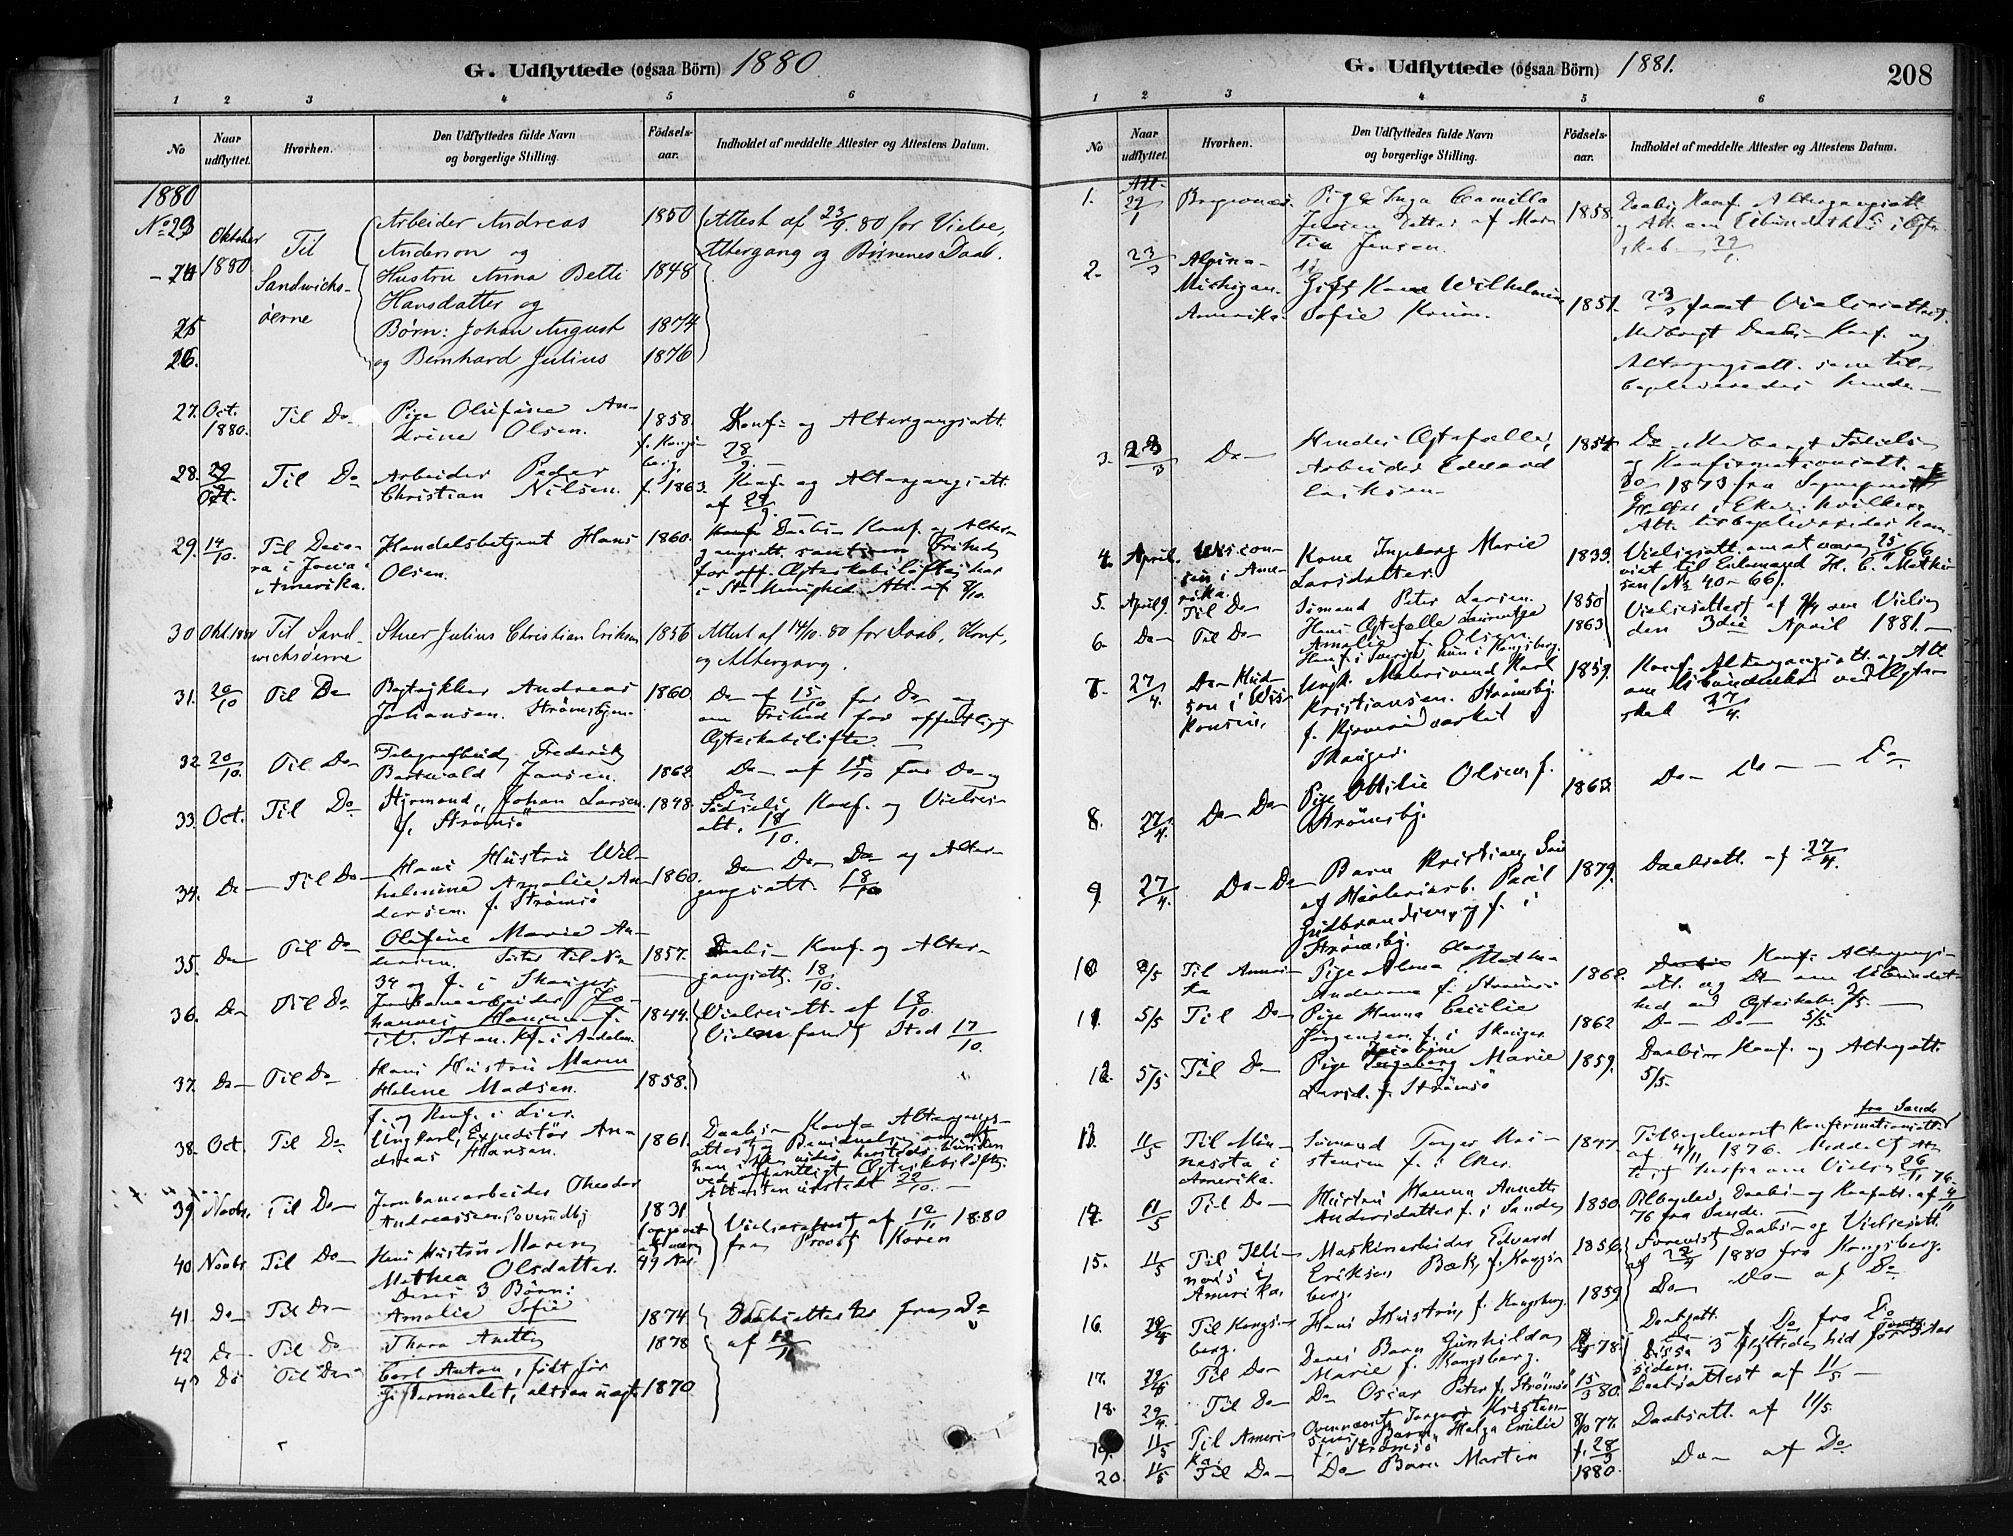 G. Udflyttede (ogsaa Börn) 1880
1 2 3 4 5 6
No
Naar udflyttet.
Hvorhen.
Den Udflyttedes fulde Navn og borgerlige Stilling.
Födsels-aar.
Indholdet af meddelte Attester og Attestens Datum.
1880
No 23 Oktober 1880 Til Sandwichs-øerne Arbeider Andreas Anderson og 1850 Attest af 23/9. 80 for Vielse, Altergang og Börnenes Daab.
- 24 Hustru Anna Betti Hansdatter og 1848
25 Børn: Johan August 1874
26. og Bernhard Julius 1876
27. Oct. 1880. Til Do Pige Olufine Andrine Olsen. 1858. f. Kongsberg. Konf- og Altergangsatt. 28/9. -
28. 29/Oct. Til Do Arbeider Peder Christian Nilsen. f. 1863. Konf- og Altergangsatt. af 29/9. -
29. 14/10. Til Decora i Iowa i Amerika. Handelsbetjent Hans Olsen. 1860. Daabs- Konf. og Altergangsatt. Frihed for off. Ægteskabsløfte Att. af 8/10
30 Okt. 1880 Til Sandwichsøerne Stuer Julius Christian Eriksen 1856 Attest af 14/10. 80 for Daab, Konf. og Altergang.
31. 20/10 Til Do Bogtrykker Andreas Johansen. Strömsbgen. 1860 Do af 15/10 for Do og om Frihed for offentligt Ægteskabsløfte. -
32 20/10. Til Do Telegrafbud, Frederik Jansen. 1862. Do- af 15/10 for Do og Do
33. Oct. Til Do Styrmand, Johan Larsen. f. Strömsö 1848. Födsels, Konf. og Vielses-att. 18/10.
34. Do- Til Do- Hans Hustru Wilhelmine Amalie Andersen. f. Strömsö 1860. Do- Do- Do- og Altergangsatt. 18/10
35. Do- Til Do Olufine Marie Andersen. Söster til No 34 og f. i Skoger. 1857. Daabs- Konf. og Altergangsatt. 18/10.
36. Do Til Do Jernbanearbeider Johannes Hansen f. i V. Toten. 1844. Vielsesatt. af 18/10 Vielsen fandt Sted 17/10.
37. Do- Til Do Hans Hustru Maren Helene Madsen. f. og Konf. i Lier. 1858.
38. Oct. Til Do Ungkarl, Expeditör Andreas Hansen. 1861. Daabs- Konf- Altergangsattest og ved offentligt Ægteskabsløfte. Attesten udstedt 22/10. -
39 Novbr. Til Do- Jernbanearbeider Theodor Andreassen 1831 Vielsesattest af 12/11 1880 fra Provst Koren
40 Novbr. Til Do- Hans Hustru Maren Mathea Olsdatter. 49 Aar
Deres 3 Børn:
41 Do- Til Do- Amalie Sofie 1874 Daabsattester fra Do af 12/11
42 Do- Til Do Thora Anette 1878
43 Do Til Do Carl Anton, født før Giftermaalet, altsaa uægte 1870
G. Udflyttede (ogsaa Börn) 1881.
208
1 2 3 4 5 6
No
Naar udflyttet.
Hvorhen.
Den Udflyttedes fulde Navn og borgerlige Stilling.
Födsels-aar.
Indholdet af meddelte Attester og Attestens Datum.
1. Att. 22/1 Bragernæs. Pige Inga Camilla Jensen Datter af Martin Jensen. 1858. Daabs, Konf. Altergangsatt. og Att. om Ubundethed i Ægteskab
2. 23/3 Alpina- Michigan- Amerika. Gift Kone Wilhelmine Sofie 1851. 23/3 faaet Vielsesattest. Medbragt Daabs- Konf. og Altergangsatt. som tilbageleveredes hende. -
3. 23/3 Do- Hendes Ægtefælle, Arbeider Edvard Eriksen- 1854 Do- Medbragt Födsels og Konfirmationsatt. af 1873 fra i Eker. hvilken Att. tilbageleveredes ham
4. April. Wisconsin i Amerika. Kone Ingeborg Marie Larsdatter. 1833. Vielsesatt. om at være 25/11 66 viet til Enkemand H. C. Mathisen (No 40- 66).
5. April 9. Til Do Sömand Peter Larsen. 1850 Vielsesattest af 9/4 om Vielse den 3die April 1881. -
6. Do- Til Do- Hans Ægtefælle Amalie f. Olsen. Konf. i Sverige, hun i Kongsberg. 1863
7. 27/4. Do- Hudson i Wiskonsin. Ungk. Malersvend Karl Kristiansen. Strömsby. Skoger. 1859. Konf. Altergangsatt. og Att. om Ubundethed ved Ægteskab 27/4.
8. 27/4. Do- Do- Pige Ottilie Olsen, f. Strömsby. 1863. Do- Do- - Do
9 27/4. Do- Do Barn Kristian, Sön af Paul Gulbrandsen, og f. i Strömsby. 1879. Daabsatt. af 27/4.
10 2/5 Til Amerika Pige Alma Mathea Andersen f. Strömsö 1862. Konf. Altergangsatt. og Do om Ubundethed ved Ægteskab. 2/5. -
11 5/5 Til Do Pige Hanna Cecilie Jörgensen f. i Skoger 1862 Do- Do- 5/5.
12 5/5 Til Do Pige Jacobine Marie Larsd. f. Strömsö 1859. Daabs- Konf. og Altergatt. 5/5.
13. 11/5 Til Minnesota i Amerika. Sömand Torger f. i Eker. 1847. fra Sande Tilbageleveret Konfirmationsatt. af 4/11 1876. Meddelt Attest herfra om Vielse 26/11 76.
14. 11/5 Til Do- Hustru Hanna Annette Andersdatter f. i Sande 1850. Tilbagelev. Daabs- og Konfatt. af 4/11 76 fra Sande. -
15. 11/5 Til Illinois i Amerika. Maskinarbeider Edvard Eriksen Bæk, f. Kongsberg. 1856. Forevist Daabs- og Vielsesatt. af 1880 fra Kongsberg.
16. 29/4 Til Kongsberg. Hans Hustru, f. Kongsberg. 1859 Do- Do- af Do
17. 29/4 Til Do- Deres Barn Gunhilda Marie f. Kongsberg. 78. Daabsatt. af Do fra Do Disse 3 flyttede hid for siden.
18. 29/4. Til Do- Do Oscar Peter f. Strömsö 15/3 80. Daabsattest af 11/5. -
19. 11/5 Til Amerika. Ovennævnte Torger Barn Helga Emilie f. Strömsö 8/10 77. Daabsatt. af 11/5.
20. 11/5 Til Do- Do- Barn Martin f. 28/3 1880. Do- af Do